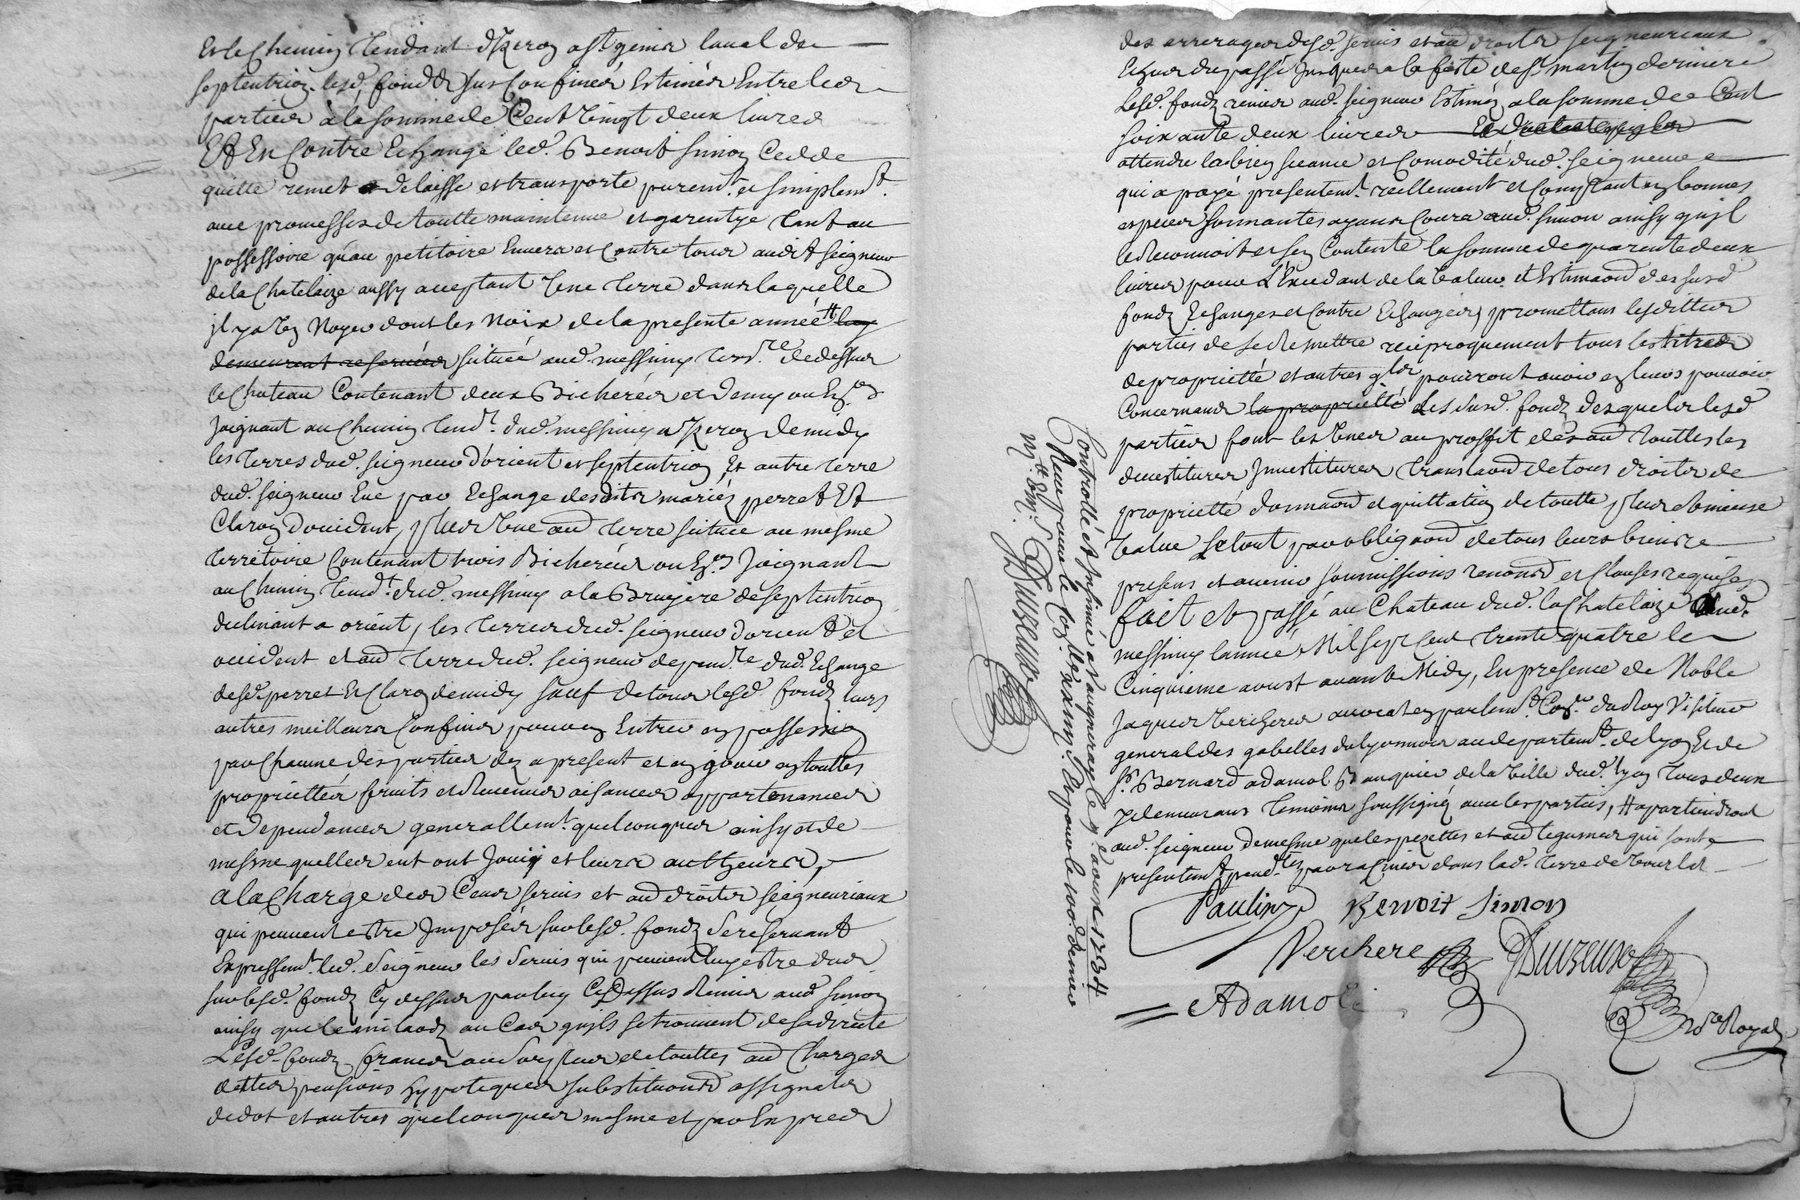 Et le Chemin tendant d'Izeron a St. genis laual de
septentrion. lesd. fondz sus Confinés Estimés Entre les
parties a la somme de Cent Vingt deux liures
Et En Contre Echange led. Benoit Simon Cedde
quitte remet delaisse et transporte purem.t et simplem.t
auec promesses de toutte maintenue et garentye tant au
possessoire qu'au petitoire Enuers et Contre tous audit seigneur
de la Chatelaize aussy acceptant Vne terre dans laquelle
jl y a Vn Noyer dont les Noix de la presente année #
demeurent reservées située aud. messimy terr.re de dessus
le Chateau Contenant deux Bicherées et demy ou En.on
Joignant au Chemin tend.t dud. messimy a Izeron de midy
les terres dud. seigneur d'orient et septentrion Et autre terre
dud. seigneur Eue par Echange desdits mariés perret Et
Claron d'occident, plus Vne aud. terre située au mesme
territoire Contenant trois Bicherées ou En.on Joignant
au Chemin tend.t dud. messimy a la Bruyere de septentrion
declinant a orient, les terres dud. seigneur d'orient et
occident et aud. terre dud. seigneur dud. Echange
desd. perret Et Claron de midy sauf de tous lesd. fondz leurs
autres meilleurs Confins pouuoir Entrer en possession
par Chacune des parties dez a present et en jouir en touttes
proprietés fruits et Reuenus aisances appartenances
et dependances generallem.t quelconques ainsy et de
mesme quelles ent ont Jouy et leurs autheurs,
a la Charge des Cens seruis et aud. droits seigneuriaux
qui peuuent estre Jmposés sur lesd. fondz se reseruant
Expressem.t led. Seigneur les Seruis qui peuuent luy estre dus
sur lesd. fondz Cy dessus par luy Remis aud. Simon
ainsy que le milaod au Cas qu'jls se trouuent de sa directe
Lesd. fondz francs au surplus de touttes aud. Charges
dettes pensions hypoteques substitutions assignats
de dot et autres quelconques mesme et par Exprès
des arrerages desd. seruis et aud. droits seigneuriaux
Echus du passé jusques a la feste de St. martin derniere
Lesd. fondz remis aud. seigneur Estimés a la somme de Cent
soixante deux liures
attendu la bien seance et Comodité dud. seigneur
qui a payé presentem.t reellement et Comptant en bonnes
especes sonnantes ayans Cours aud. Simon ainsy qu'jl
le Reconnoit et s'en Contente la somme de quarente deux
liures pour L'Excedant de la Valeur et Estimaon desusd.
fondz Echangés et Contre Echangés, promettans lesdittes
parties de se Remettre reciproquement tous les titres
de proprietté et autres qlz pourront auoir en leurs pouuoir
Concernans la proprietté Les susd. fondz desquels lesd.
parties sont les Vnes au proffit des aud. touttes les
deuestitures Jnuestitures translaon de tous droits de
proprietté donnaon et quittation de toutte plus ou moins
Value Le tout par obligaon de tous leurs biens
presens et auenir soumissions renonc.on et Clauses requises
fait et passé au Chateau dud. la Chatelaize aud.
messimy l'année Mil sept cent trente quatre le
Cinquieme aoust auant Midy, En presence de Noble
Jaques Verchere auocat en parlem.t Con.er du Roy Visiteur
general des gabelles du lyonnois au departem.t de lyon Et de
Sr. Bernard adamoli Banquier de la Ville dud. lyon tous deux
y demeurans temoins soussignés auec les parties, # apartiendront
aud. seigneur de mesme que les pezettes et aud. legumes qui sont
presentem.t pend.tes par racines dans lad. terre
Paulin Benoit Simon
Verchere Duvzeuse
Adamoli Nore Royal
Controllé et Jnsinué a vaugneray le 9e. d'aoust 1734
Reçu pour le Con.lle
Duvzeuse